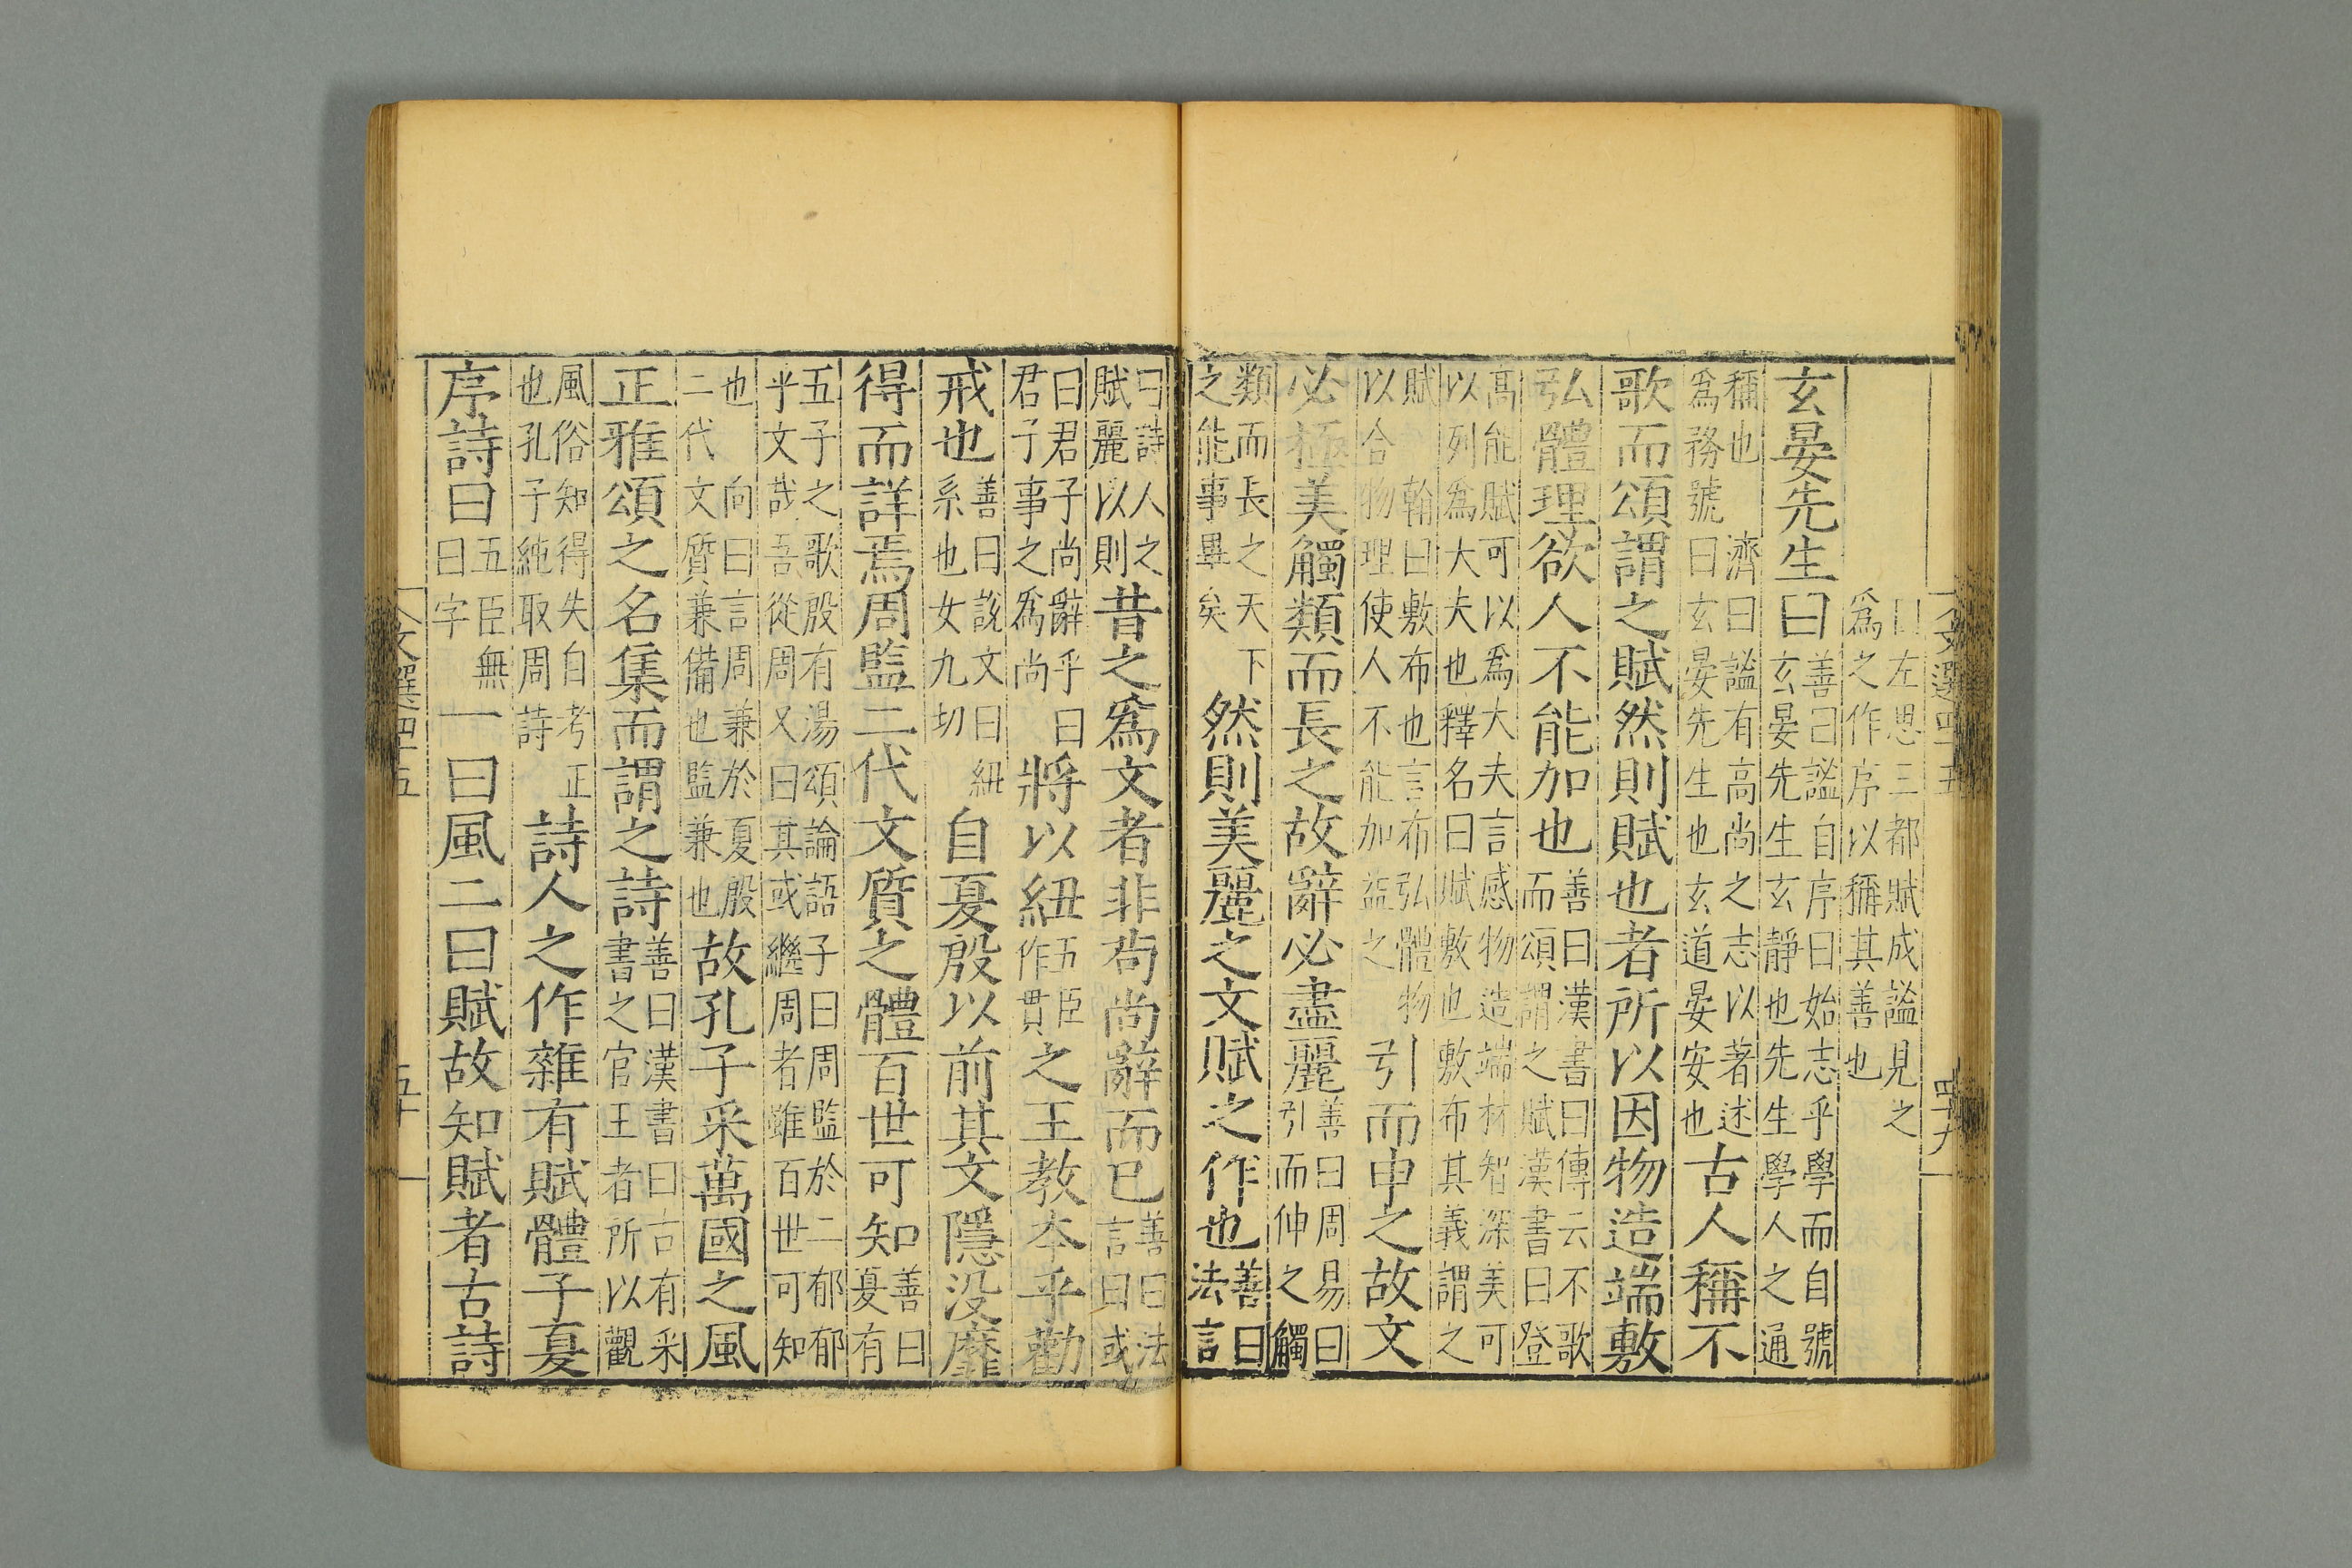 曰左思三都賦成謐見之
爲之作序以稱其善也
玄晏先生曰
善曰謐自序曰始志乎學而自號
玄晏先生玄靜也先生學人之通
稱也
爲務號
濟曰謐有高尚之志以著述
曰玄晏先生也玄道晏安也
古人稱不
歌而頌謂之賦然則賦也者所以因物造端敷
弘體理欲人不能加也
善曰漢書曰傳云不歌
而頌謂之賦漢書曰登
高能賦可以爲大夫言感物造端材智深美可
以列爲大夫也釋名曰賦敷也敷布其義謂之
賦
翰曰敷布也言布弘體物
以合物理使人不能加益之
引而申之故文
必極美觸類而長之故辭必盡麗
善曰周易曰
引而伸之觸
類而長之天下
之能事畢矣
然則美麗之文賦之作也
善曰
法言
曰詩人之
賦麗以則
昔之爲文者非苟尚辭而已
善曰法
言曰或
曰君子尚辭乎曰
君子事之爲尚
將以紐
五臣
作貫
之王教本乎勸
戒也
善曰說文曰紐
系也女九切
自夏殷以前其文隱没靡
得而詳焉周監二代文質之體百世可知
善曰
夏有
五子之歌殷有湯頌論語子曰周監於二郁郁
乎文哉吾從周又曰其或繼周者雖百世可知
也
向曰言周兼於夏殷
二代文質兼備也監兼也
故孔子采萬國之風
正雅頌之名集而謂之詩
善曰漢書曰古有采
書之官王者所以觀
風俗知得失自考正
也孔子純取周詩
詩人之作雜有賦體子夏
序詩曰
五臣無
曰字
一曰風二曰賦故知賦者古詩
文選四十五
四十九
文選四十五
五十